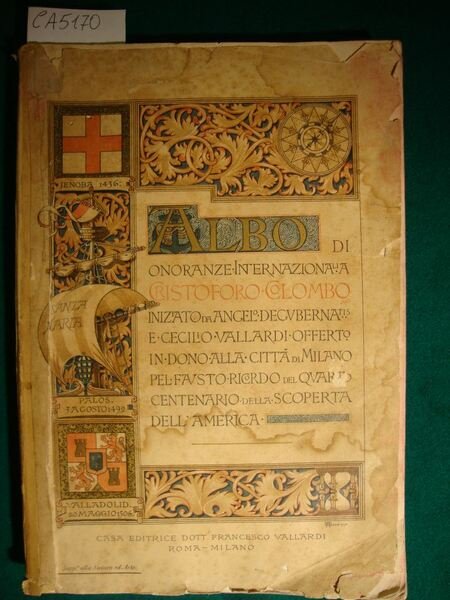 CA5170
JENOBA 1436:
SANTA
MARIA
PALOS.
3 AGOSTO 1492
VALLADOLID.
20 MAGGIO 1506.
ALBO DI
ONORANZE·INTERNAZIONALI A
CRISTOFORO·COLOMBO
INIZIATO DA ANGELO DE GUBERNATIS
E·CECILIO·VALLARDI·OFFERTO
IN·DONO·ALLA·CITTÀ DI MILANO
PEL·FAUSTO·RICORDO DEL QUARTO
CENTENARIO·DELLA·SCOPERTA
DELL'AMERICA·
CASA EDITRICE DOTT. FRANCESCO VALLARDI
ROMA–MILANO